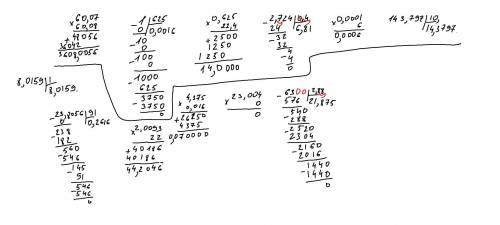 60,07
×60,08
+48056
36042
3608,0056
-1 | 625
0 | 0,0016
-10
0
100
0
-1000
625
-3750
-3750
0
×0,625
22,4
+2500
1250
1250
14,0000
-2,724
24
-32
32
-4
4
0
×0,0001
6
0,0006
143,797 | 10,
14,3797
8,0159 | 1
8,0159
-23,8056 | 91
0 | 0,2616
-238
182
-560
-546
-145
91
-546
-546
0
×2,0093
22
+40186
40186
44,2046
×4,375
0,016
+26250
4375
0,070000
×23,004
0
0
-6300 | 2,88
576 | 21,875
-540
-288
-2520
2304
-2160
2016
1440
-1440
0